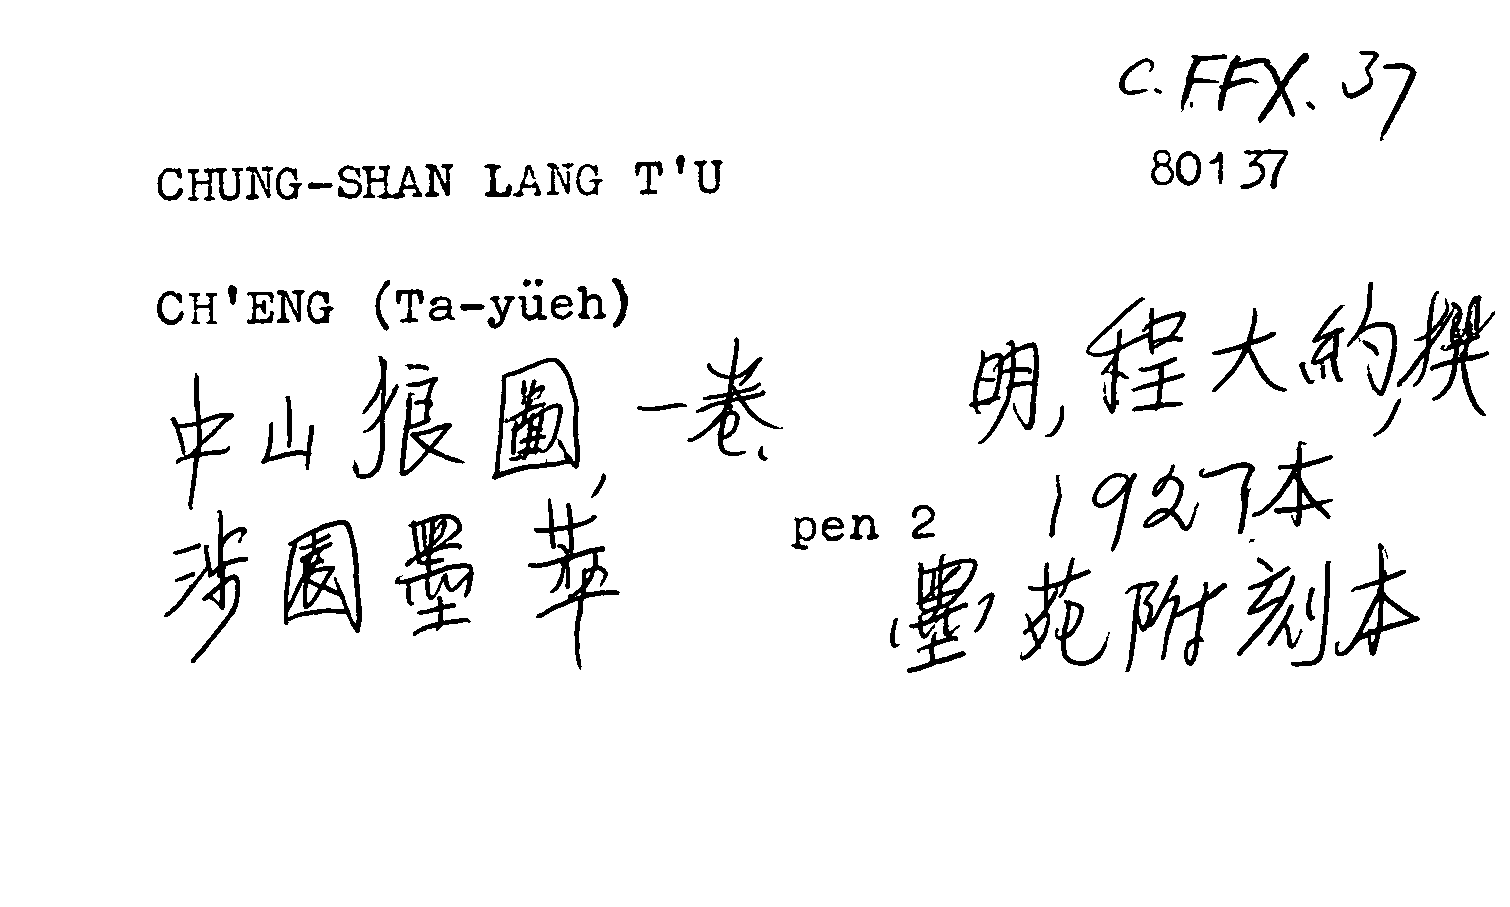 C. FFX. 37
80137
CHUNG-SHAN LANG T'U
CH'ENG (Ta-yüeh)
中山狼圖, 一卷. 明, 程大約, 撰
涉園墨萃 pen 2 1927本
(墨苑附刻本